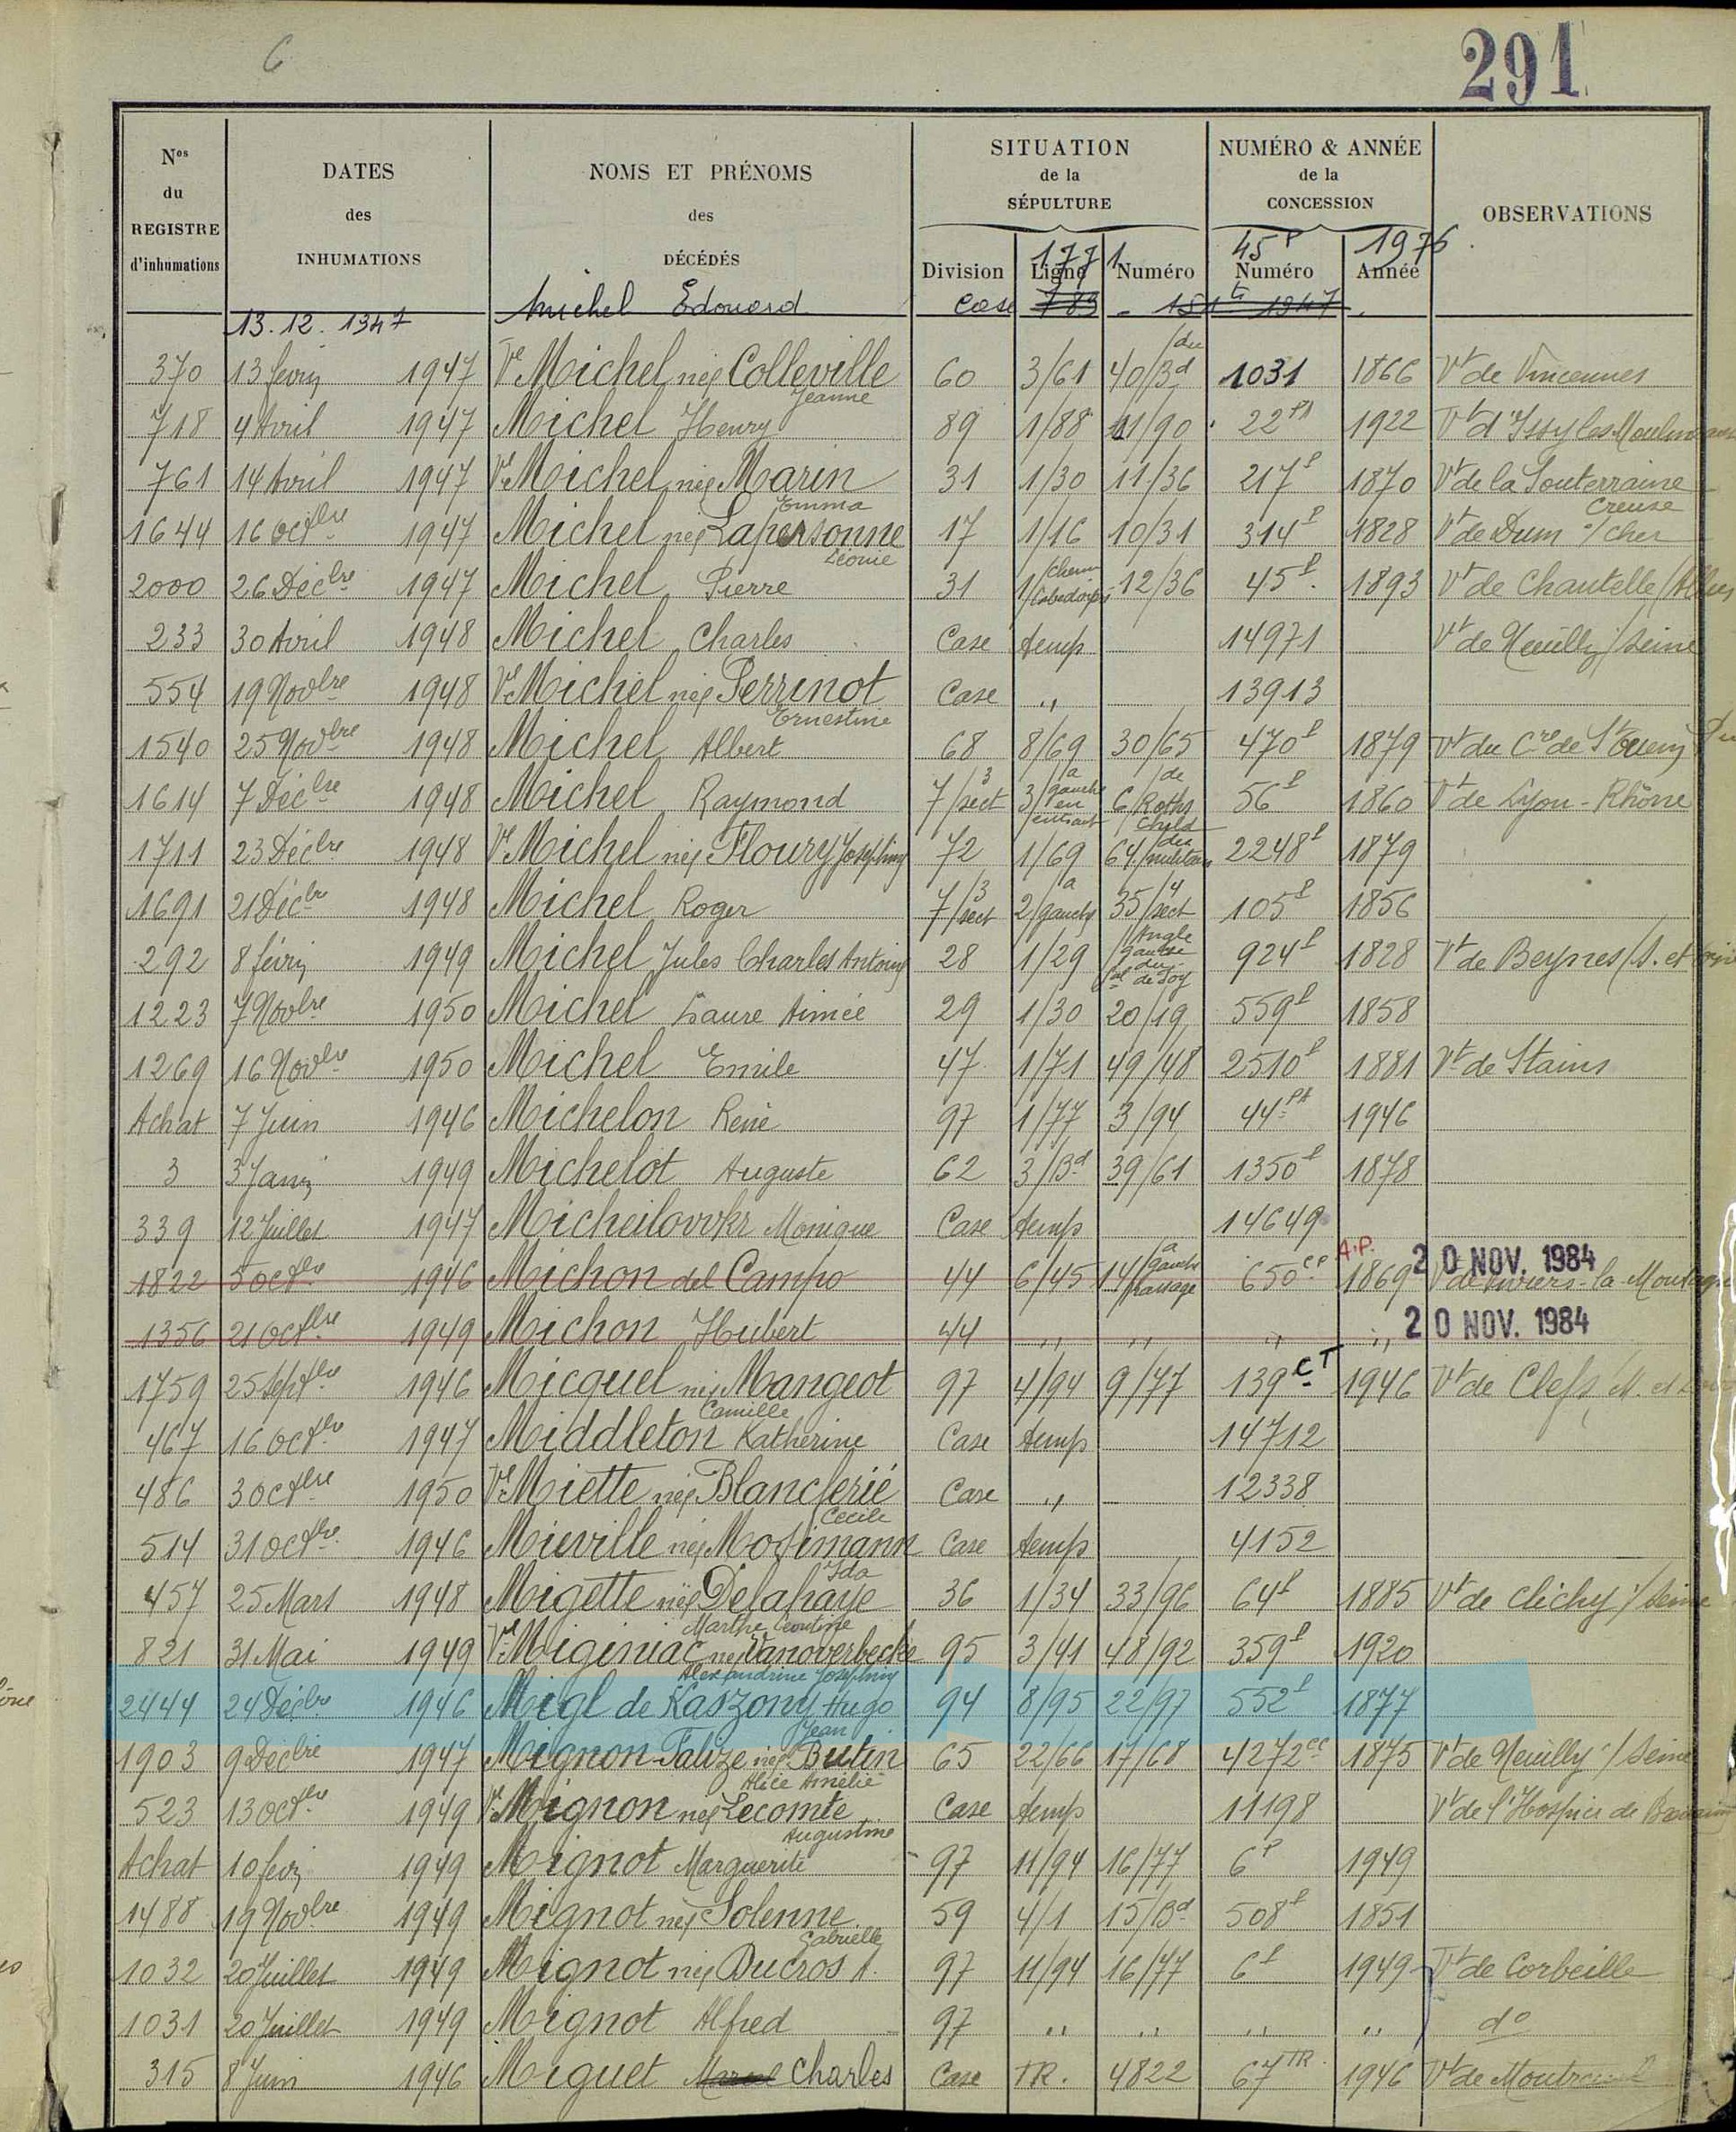 6
291
Nos du REGISTRE d'inhumations | DATES des INHUMATIONS | NOMS ET PRÉNOMS des DÉCÉDÉS | SITUATION de la SÉPULTURE | NUMÉRO & ANNÉE de la CONCESSION | OBSERVATIONS
Division | Ligne | Numéro | Numéro | Année
177 1 45 P 1976
13.12.1947 Michel Edouard Case 789 - 151 t 1947
370 13 fevr 1947 Ve Michel née Colleville Jeanne 60 3/61 40/du Bd 1031 1866 Vt de Vincennes
718 4 Avril 1947 Michel Henry 89 1/88 11/90 22 PA 1922 Vt d'Issy les Moulineaux
761 14 Avril 1947 Ve Michel née Marin Emma 31 1/30 11/36 217 P 1870 Vt de la Souterraine Creuse
1644 16 Octbre 1947 Michel née Lapersonne Léonie 17 1/16 10/31 314 P 1828 Vt de Dum s/ Cher
2000 26 Décbre 1947 Michel Pierre 31 1/Chemin 12/36 45 P 1893 Vt de Chantelle
233 30 Avril 1948 Michel Charles Case temp 14971 Vt de Neuilly s/ Seine
554 19 Novbre 1948 Ve Michel née Perrinot Ernestine Case " 13913
1540 25 Novbre 1948 Michel Albert 68 8/69 30/65 470 P 1879 Vt du Cre de St Ouen
1614 7 Décbre 1948 Michel Raymond 7/3 sect 3/a gauche en entrant 6/de Rothschild 56 P 1860 Vt de Lyon - Rhône
1711 23 Décbre 1948 Ve Michel née Floury Joséphine 72 1/69 64/ 2248 P 1879
1691 21 Décbre 1948 Michel Roger 7/3 sect 2/a gauche 35/4 sect 105 P 1856
292 8 févr 1949 Michel Jules Charles Antoine 28 1/29 /Angle gauche du Gal de Foy 924 P 1828 Vt de Beynes/S. et
1223 7 Novbre 1950 Michel Laure Aimée 29 1/30 20/19 559 P 1858
1269 16 Novbre 1950 Michel Emile 47 1/71 49/48 2510 P 1881 Vt de Stains
Achat 7 Juin 1946 Michelon René 97 1/77 3/94 44 PA 1946
3 3 Janv 1949 Michelot Auguste 62 3/Bd 39/61 1350 P 1878
339 12 Juillet 1947 Micheilovvkr Monique Case temp 14649
1822 5 Octbre 1946 Michon del Campo 44 6/45 14/a gauche passage 650 CP A.P. 1869 20 NOV. 1984 Vt de Viviers-la-Montagne
1356 21 Octbre 1949 Michon Hubert 44 " " " " 20 NOV. 1984
1759 25 Septbre 1946 Micquel née Mangeot Camille 97 4/94 9/77 139 CT 1946 Vt de Clefs, M. et
467 16 Octbre 1947 Middleton Katherine Case temp 14712
486 3 Octbre 1950 Ve Miette née Blanclerié Cecile Case " 12338
514 31 Octbre 1946 Mieville née Mosimann Ida Case temp 4152
457 25 Mars 1948 Migette née Delahaye Marthe Leontine 36 1/34 33/96 64 P 1885 Vt de Clichy s/ Seine
821 31 Mai 1949 Ve Miginiac née Vanoverbecke Alexandrine Joséphine 95 3/41 48/92 359 P 1920
2444 24 Décbre 1946 Migl de Kaszony Hugo Jean 94 8/95 22/97 552 P 1877
1903 9 Décbre 1947 Mignon-Falize née Butin Alice Amélie 65 22/66 17/68 4272 CC 1875 Vt de Neuilly s/ Seine
523 13 Octbre 1949 Ve Mignon née Lecomte Augustine Case temp 11198 Vt de l'Hospice de
Achat 10 fevr 1949 Mignot Marguerite 97 11/94 16/77 6 P 1949
1488 19 Novbre 1949 Mignot née Solenne Gabrielle 59 4/1 15/Bd 508 P 1851
1032 20 Juillet 1949 Mignot née Ducros A. 97 11/94 16/77 6 P 1949 Vt de Corbeille
1031 20 Juillet 1949 Mignot Alfred 97 " " " " do
315 8 Juin 1946 Miguet Marcel Charles Case TR. 4822 67 TR. 1946 Vt de Montreuil